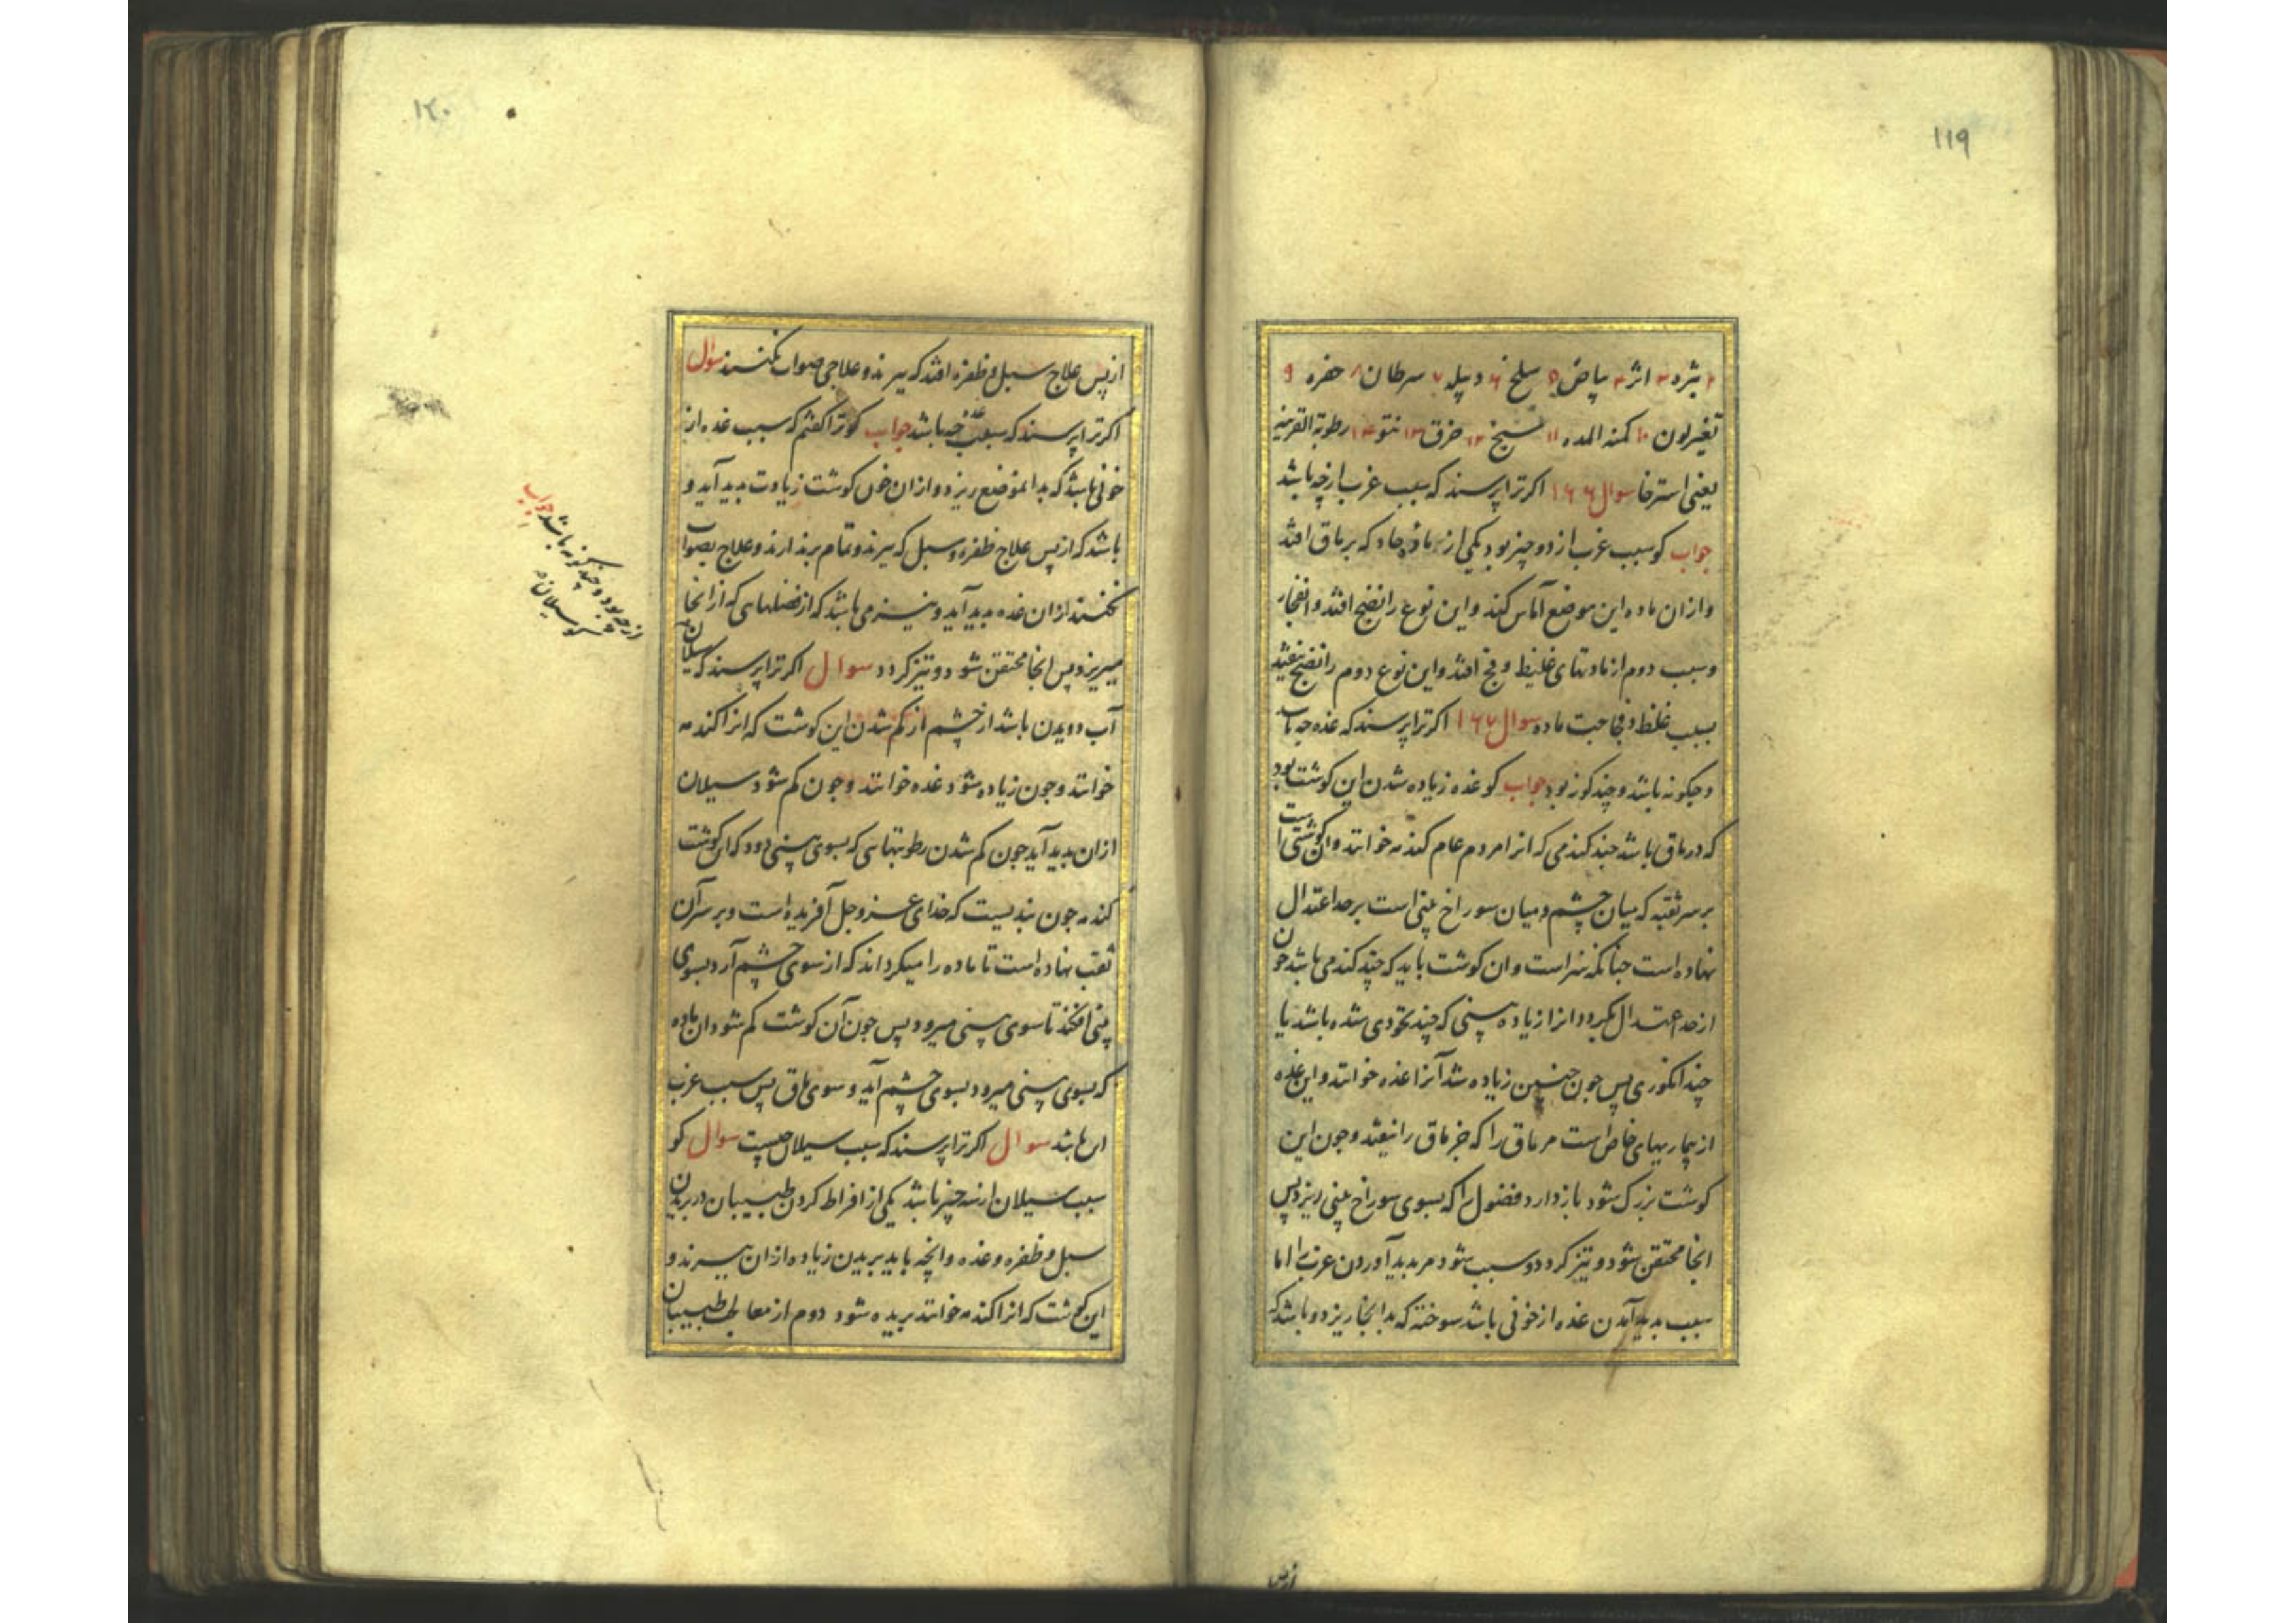 ۱۱۹
۲ بثره ۳ اثر ۴ بیاض ۵ سلخ ۶ دبیله ۷ سرطان ۸ حفره ۹
تغیر لون ۱۰ کمنه المده ۱۱ تشنج ۱۲ خرق ۱۳ نتو ۱۴ رطوبة القرنیه
یعنی استرخا سوال ۱۶۶ اکر ترا پرسند که سبب غرب از چه باشد
جواب کو سبب غرب از دو چیز بود یکی از ماده حاد که بر ماق افتد
و ازان ماده این موضع آماس کند و این نوع را نضج افتد و انفجار
و سبب دوم از مادتهای غلیظ و فج افتد و این نوع دوم را نضج نیفتد
بسبب غلظ و فجاجت ماده سوال ۱۶۷ اکر ترا پرسند که غده چه باشد
و چکونه باشد و چند کونه بود جواب کو غده زیاده شدن این کوشت بود
که در ماق باشد چند کندمی که انرا مردم عام کندمه خوانند و ان کوشتی است
بر سر ثقبه که میان چشم و میان سوراخ بینی است بر حد اعتدال
نهاده است چنانکه سزاست و ان کوشت باید که چند کندمی باشد چون
از حد اعتدال بکردد انرا زیاده بینی که چند نخودی شده باشد یا
چند انکوری پس چون چنین زیاده شد آنرا غده خوانند و این غده
از بیماریهای خاص است مر ماق را که جز ماق را نیفتد و چون این
کوشت بزرک شود باز دارد فضول را که بسوی سوراخ بینی ریزد پس
انجا محتقن شود و تیز کردد و سبب شود مر بدید آوردن غرب را اما
سبب بدید آمدن غده از خونی باشد سوخته که بدانجا ریزد و باشد که
از پس
۱۲۰
از پس علاج سبل و ظفره افتد که ببرند و علاجی صواب نکنند سوال
اکر ترا پرسند که سبب غده چه باشد جواب کو ترا کفتم که سبب غده از
خونی باشد که بدان موضع ریزد و ازان خون کوشت زیادت بدید آید و
باشد که از پس علاج ظفره و سبل که ببرند و تمام برندارند و علاج بصواب
نکنند ازان غده بدید آید و نیز می باشد که از فضلهایی که از انجا
میریزد پس انجا محتقن شود و تیز کردد سوال اکر ترا پرسند که سیلان
از چه بود و چند کونه باشد جواب
کو سیلان
آب دویدن باشد از چشم از کم شدن این کوشت که انرا کندمه
خوانند و چون زیاده شود غده خوانند و چون کم شود سیلان
ازان بدید آید چون کم شدن رطوبتهایی که بسوی بینی رود که این کوشت
کندمه چون بندیست که خدای عز و جل آفریده است و بر سر آن
ثقب نهاده است تا ماده را میکرداند که از سوی چشم آرد بسوی
بینی افکند تا سوی بینی میرود پس چون آن کوشت کم شود ان ماده
که بسوی بینی میرود بسوی چشم آید و سوی ماق پس سبب غرب
این باشد سوال اکر ترا پرسند که سبب سیلان چیست سوال کو
سبب سیلان از سه چیز باشد یکی از افراط کردن طبیبان در بریدن
سبل و ظفره و غده و انچه باید بریدن زیاده ازان ببرند و
این کوشت که انرا کندمه خوانند بریده شود دوم از معالجه طبیبان